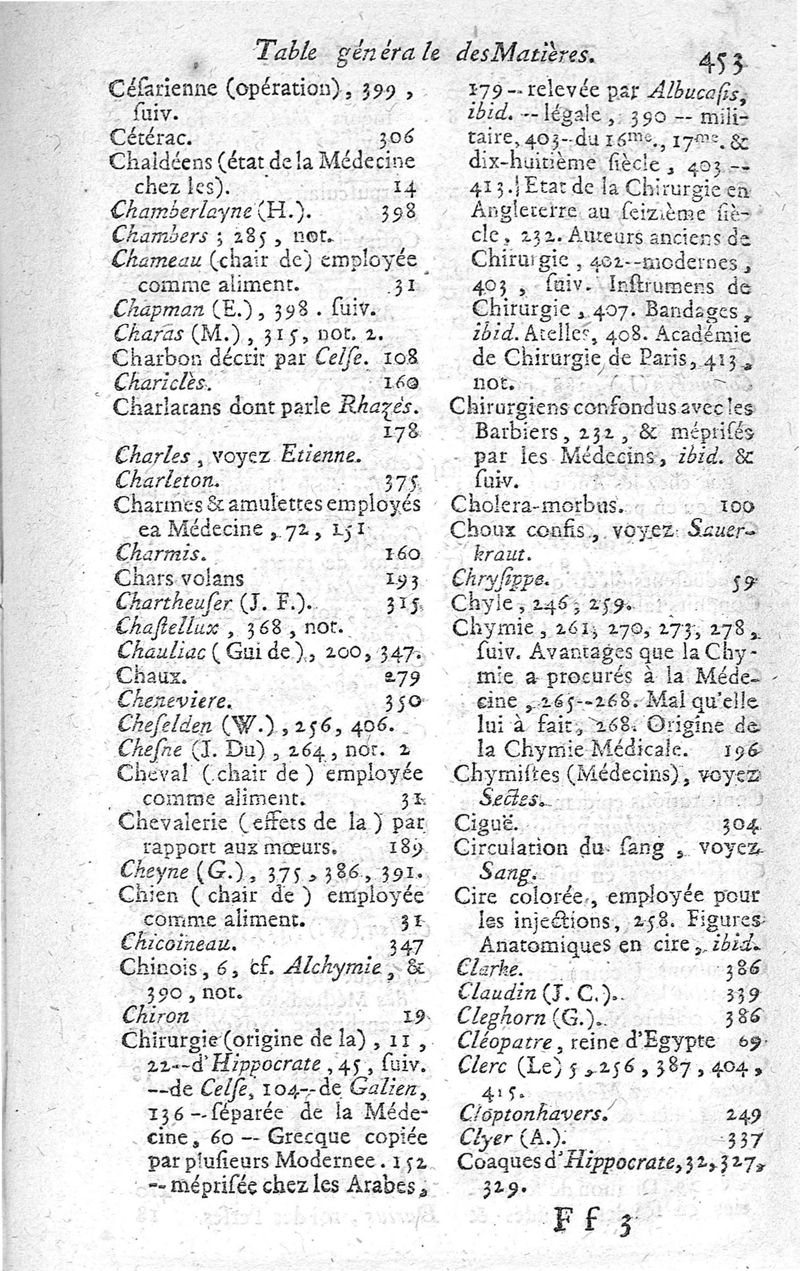 Table générale des Matières. 453
Céſarienne (opération), 399,
ſuiv.
Cétérac. 306
Chaldéens (état de la Médecine
chez les). 14
Chamberlayne (H.). 398
Chambers ; 285, not.
Chameau (chair de) employée
comme aliment. 31
Chapman (E.), 398. ſuiv.
Charas (M.), 315, not. 2.
Charbon décrit par Celſe. 108
Chariclès. 160
Charlatans dont parle Rhazès.
178
Charles, voyez Etienne.
Charleton. 375
Charmes & amulettes employés
ea Médecine, 72, 151
Charmis. 160
Chars volans 193
Chartheuſer (J. F.). 315
Chaſtellux, 368, not.
Chauliac (Gui de), 200, 347.
Chaux. 279
Cheneviere. 350
Cheſelden (W.), 256, 406.
Cheſne (J. Du), 264, not. 2
Cheval (chair de) employée
comme aliment. 31
Chevalerie (effets de la) par
rapport aux mœurs. 189
Cheyne (G.), 375, 386, 391.
Chien (chair de) employée
comme aliment. 31
Chicoineau. 347
Chinois, 6, cf. Alchymie, &
390, not.
Chiron 19
Chirurgie (origine de la), 11,
22--d'Hippocrate, 45, ſuiv.
--de Celſe, 104--de Galien,
136--ſéparée de la Méde-
cine, 60 -- Grecque copiée
par pluſieurs Modernee. 152
-- mépriſée chez les Arabes,
179 -- relevée par Albucaſis,
ibid. -- légale, 390 -- mili-
taire, 403--du 16me., 17me. &
dix-huitième ſiècle, 403 --
413. Etat de la Chirurgie en
Angleterre au ſeizième ſiè-
cle, 232. Auteurs anciens de
Chirurgie, 402--modernes,
403, ſuiv. Inſtrumens de
Chirurgie, 407. Bandages,
ibid. Atelles, 408. Académie
de Chirurgie de Paris, 413,
not.
Chirurgiens confondus avec les
Barbiers, 232, & mépriſés
par les Médecins, ibid. &
ſuiv.
Cholera-morbus. 100
Choux confis, voyez Sauer-
kraut.
Chryſippe. 59
Chyle, 246, 259.
Chymie, 261, 270, 273, 278,
ſuiv. Avantages que la Chy-
mie a procurés à la Méde-
cine, 265--268. Mal qu'elle
lui à fait, 268. Origine de
la Chymie Médicale. 196
Chymiſtes (Médecins), voyez
Sectes.
Ciguë. 304
Circulation du ſang, voyez
Sang.
Cire colorée, employée pour
les injections, 258. Figures
Anatomiques en cire, ibid.
Clarke. 386
Claudin (J. C.). 339
Cleghorn (G.). 386
Cléopatre, reine d'Egypte 69
Clerc (Le) 5, 256, 387, 404,
415.
Cloptonhavers. 249
Clyer (A.). 337
Coaques d'Hippocrate, 32, 327,
329.
F f 3